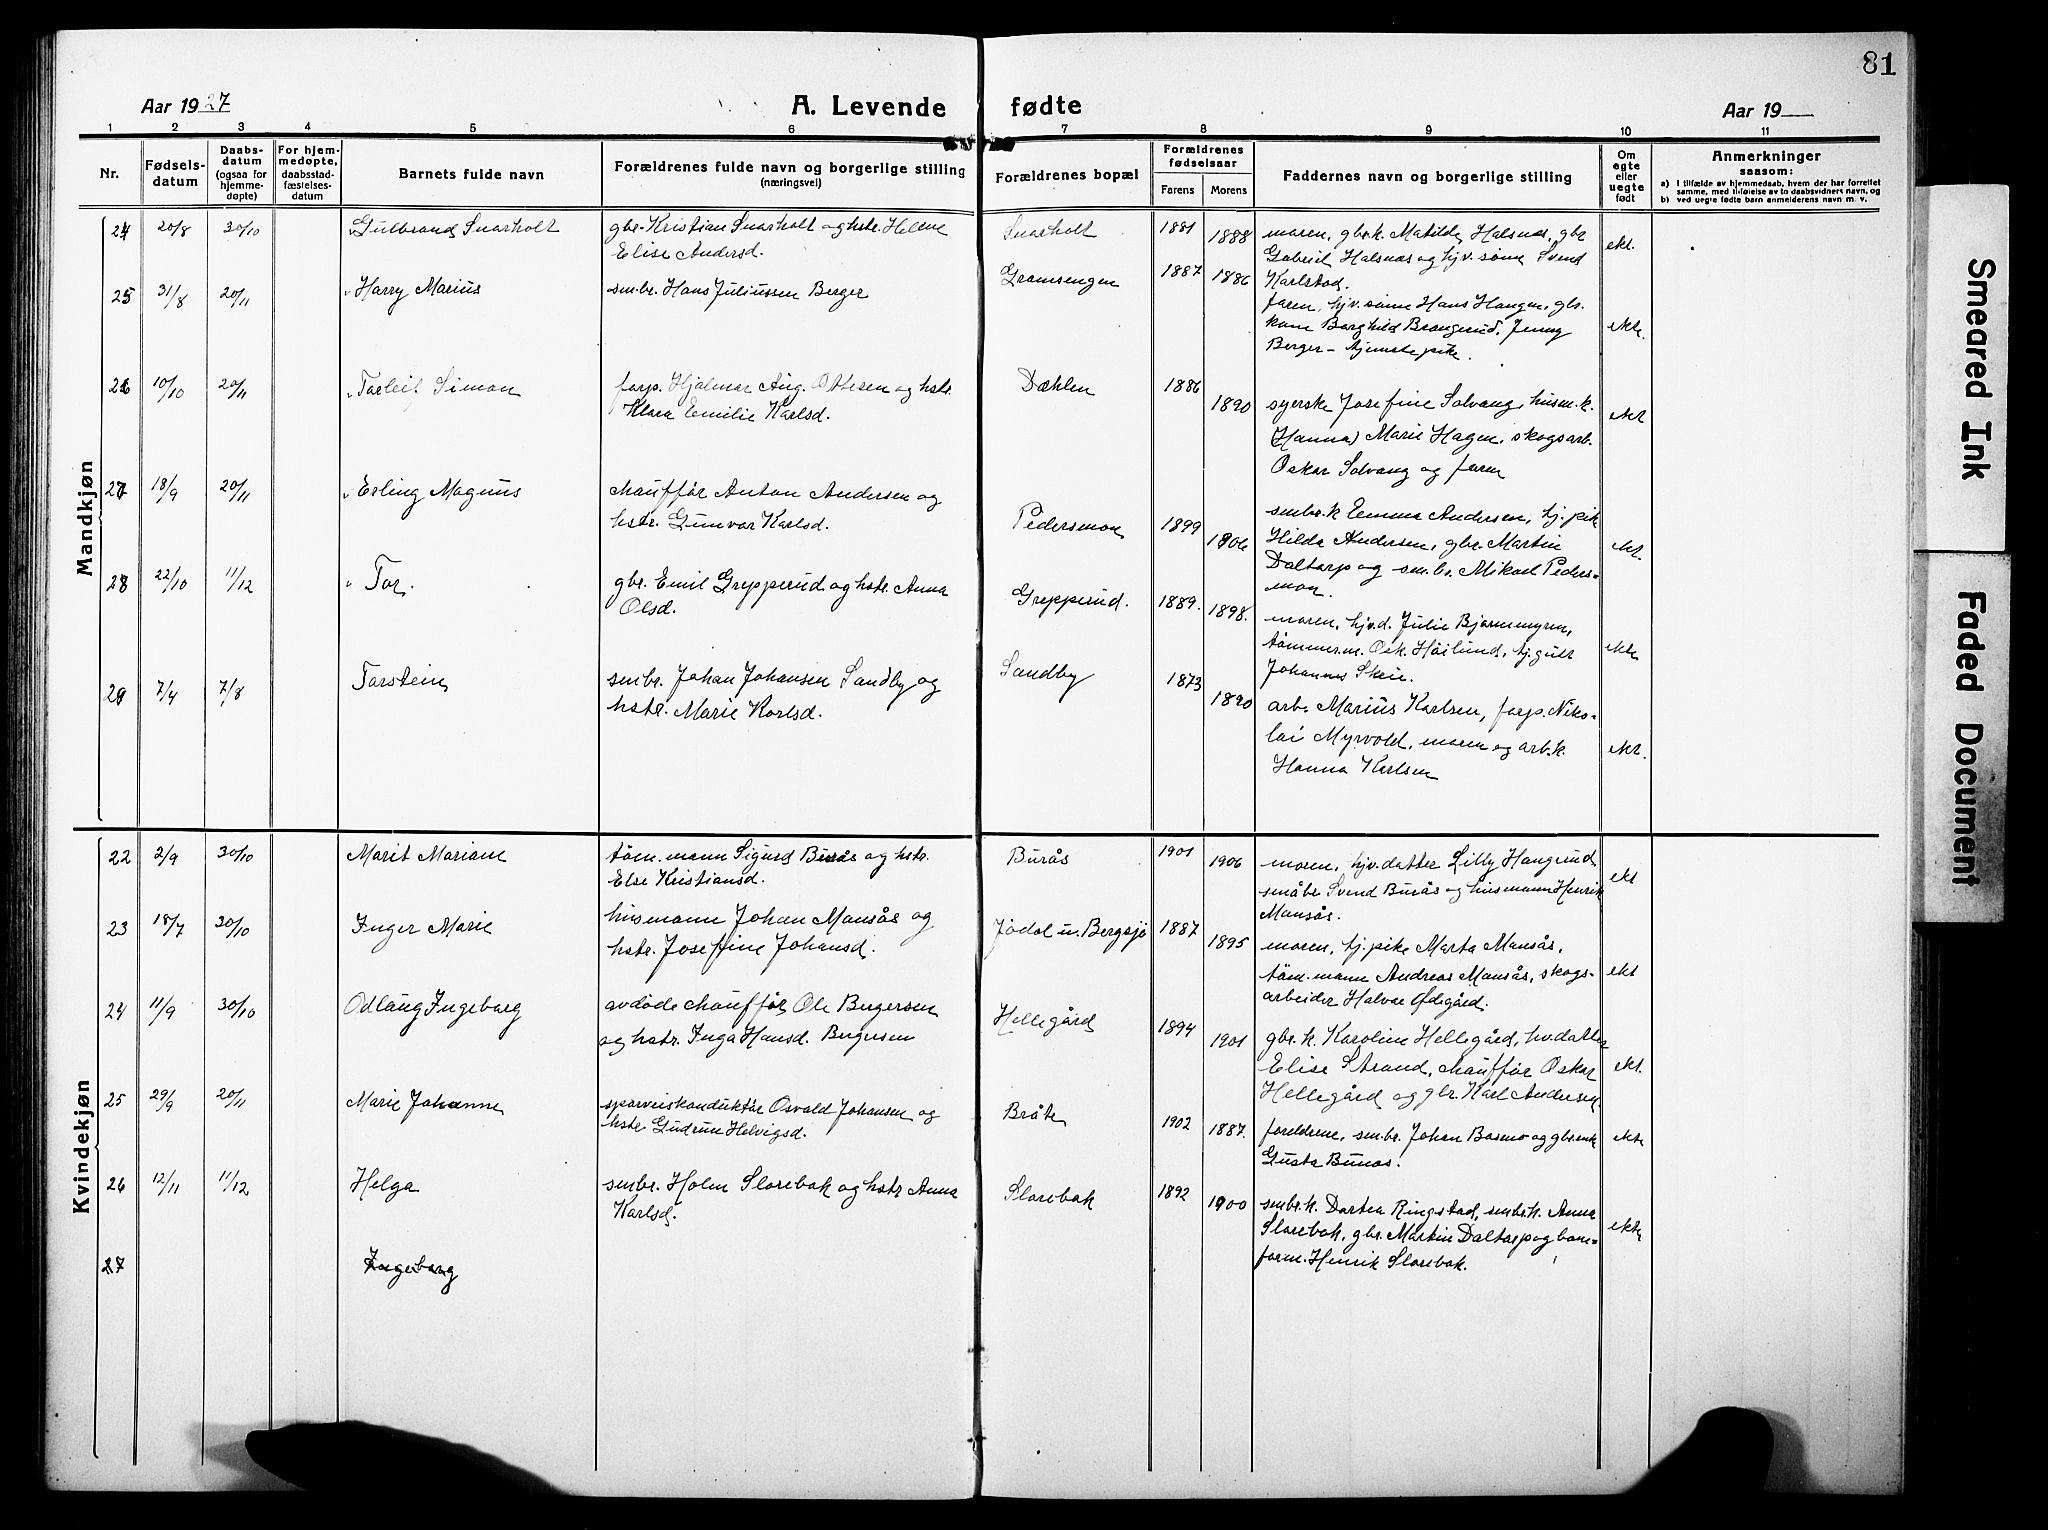 81
Aar 1927
A. Levende fødte
Aar 19
1 2 3 4 5 6 7 8 9 10 11
Nr.
Fødsels-
datum
Daabs-
datum
(ogsaa for
hjemme-
døpte)
For hjem-
medøpte,
daabsstad-
fæstelses-
datum
Barnets fulde navn
Forældrenes fulde navn og borgerlige stilling
(næringsvei)
Forældrenes bopæl
Forældrenes
fødselsaar
Farens Morens
Faddernes navn og borgerlige stilling
Om
egte
eller
uegte
født
Anmerkninger
saasom:
a) I tilfælde av hjemmedaab, hvem der har forrettet
samme, med tilføielse av to daabsvidners navn, og
b) ved uegte fødte barn anmelderens navn m. v.
Mandkjøn
24 20/8 30/10 Gulbrand Snarholt gbr. Kristian Snarholt og hstr. Helene
Elise Andersd.
Snarholt 1881 1888 moren, gbr.k. Matilde Halsnæs, gbr
Gabriel Halsnæs og hjv. sønn Svend
Karlstad.
ekt.
25 31/8 20/11 Harry Marius smbr. Hans Juliussen Berger
Gramsengen 1887 1886
faren, hjv. sønn Hans Haugen, gbr.
kone Borghild Brangerud, Jenny
Berger - tjenstepike.
ekte.
26 10/10 20/11 Torleif Simon forp. Hjalmar Aug. Ottesen og hstr.
Klara Emilie Karlsd.
Dæhlen 1886 1890 syerske Josefine Solvang, husm.k.
(Hanna) Marie Hagen, skogsarb.
Oskar Solvang og faren
ekt
27 18/9 20/11 Erling Magnus chauffør Anton Andersen og
hstr. Gunvor Karlsd.
Pedersmon 1899 1906 smbr.k Emma Andersen, hj. pik
Hilda Andersen, gbr. Martin
Daltorp og sm.br. Mikael Peders-
mon.
ekt.
28 22/10 11/12 Tor. gbr. Emil Grepperud og hstr. Anna
Olsd.
Grepperud. 1889. 1898. moren, hjv.d. Julie Bjørnemyren,
tømmerm. Osk. Høilund, hj.gutt
Johannes Skeie.
ekte
29 7/4 7/8 Torstein smbr. Johan Johansen Sandby og
hstr. Marie Karlsd.
Sandby 1873 1890 arb. Marius Karlsen, forp. Niko-
lai Myrvold, moren og arb.k.
Hanna Karlsen
ekt.
Kvindekjøn
22 2/9 30/10 Marit Mariane tøm. mann Sigurd Burås og hstr.
Else Kristiansd.
Burås 1901 1906 moren, hjv. datter Lilly Haugrud
småbr Svend Burås og husmann Henrik
Mansås.
ekt
23 18/7 30/10 Inger Marie husmann Johan Mansås og
hstr. Josefine Johansd.
Jødal u. Bergsjø 1887 1895 moren, hj. pike Marta Mansås,
tøm. mann Andreas Mansås, skogs-
arbeider Halvor Ødegård.
ekt
24 11/9 30/10 Odlaug Ingeborg avdøde chauffør Ole Bergersen
og hstr. Inga Hansd. Bergersen
Hellegård 1894 1901 gbr. k. Karoline Hellegård, hv.datter
Elise Strand, chauffør Oskar
Hellegård og gbr. Karl Andersen.
ekt.
25 29/9 20/11 Marie Johanne sporveiskonduktør Osvald Johansen og
hstr Gudrun Helvigsd.
Bråte 1902 1887. foreldrene, sm.br. Johan Bosmo og gbr.enk
Gusta Bunæs.
ekte
26 12/11 11/12 Helga smbr. Holm Slorebak og hstr Anna
Karlsd.
Slorebak 1892 1900 smbr.k. Dortea Ringstad, smbr.k. Anna
Slorebak, gbr. Martin Daltorp og bane-
form. Henrik Slorebak.
ekte
27 Ingeborg
Smeared Ink
Faded Document